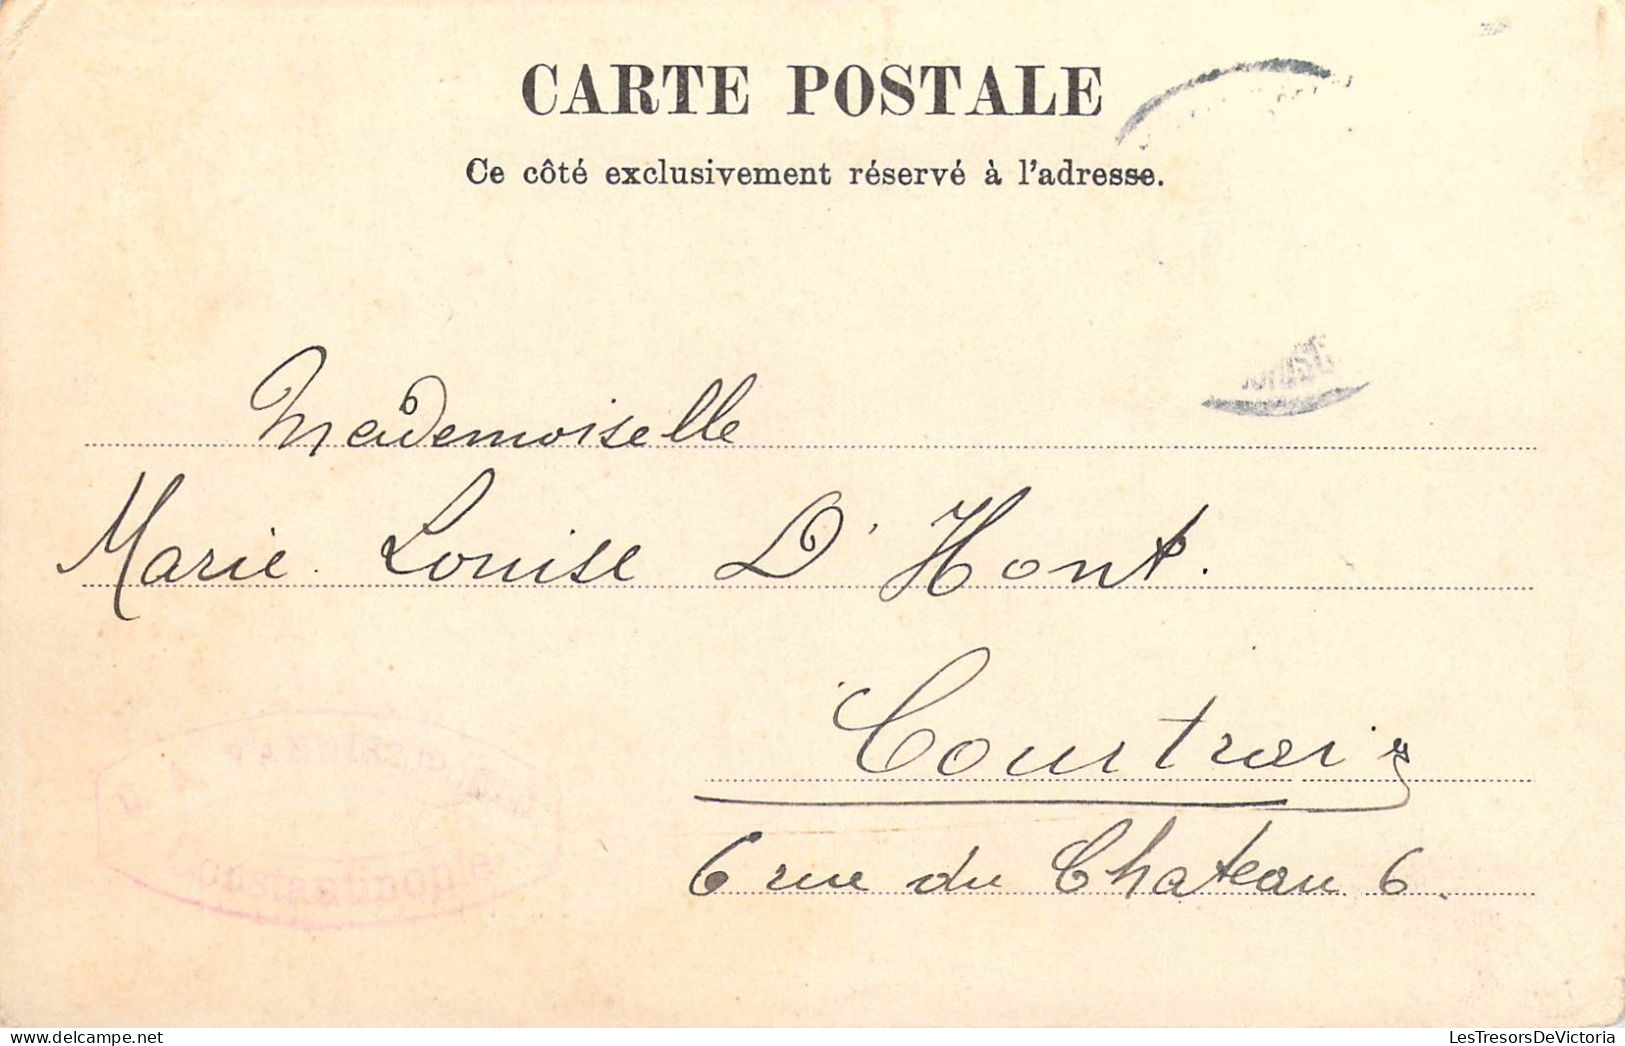 CARTE POSTALE
Ce côté exclusivement réservé à l'adresse.
Mademoiselle
Marie Louise D'Hont.
Courtrai
6 rue du Chateau 6.
Constantinople
LesTresorsDeVictoria